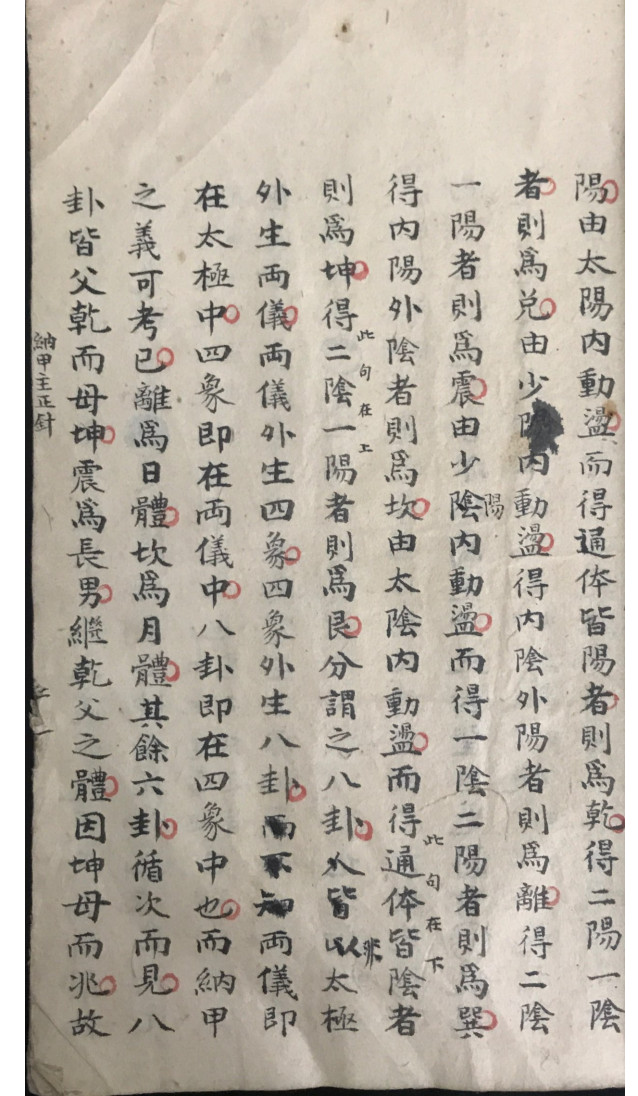 陽由太陽内動盪而得通体皆陽者則爲乾得二陽一陰
者則爲兌由少内動盪得内陰外陽者則爲離得二陰
陽
一陽者則爲震由少陰内動盪而得一陰二陽者則爲巽
此句在下
得内陽外陰者則爲坎由太陰内動盪而得通体皆陰者
此句在上
非
則爲坤得二陰一陽者則爲艮分謂之八卦人皆以太極
外生両儀両儀外生四象四象外生八卦而不知両儀即
在太極中四象即在両儀中八卦即在四象中也而納甲
之義可考已離爲日體坎爲月體其餘六卦循次而見八
卦皆父乾而母坤震爲長男繼乾父之體因坤母而兆故
納甲主正針